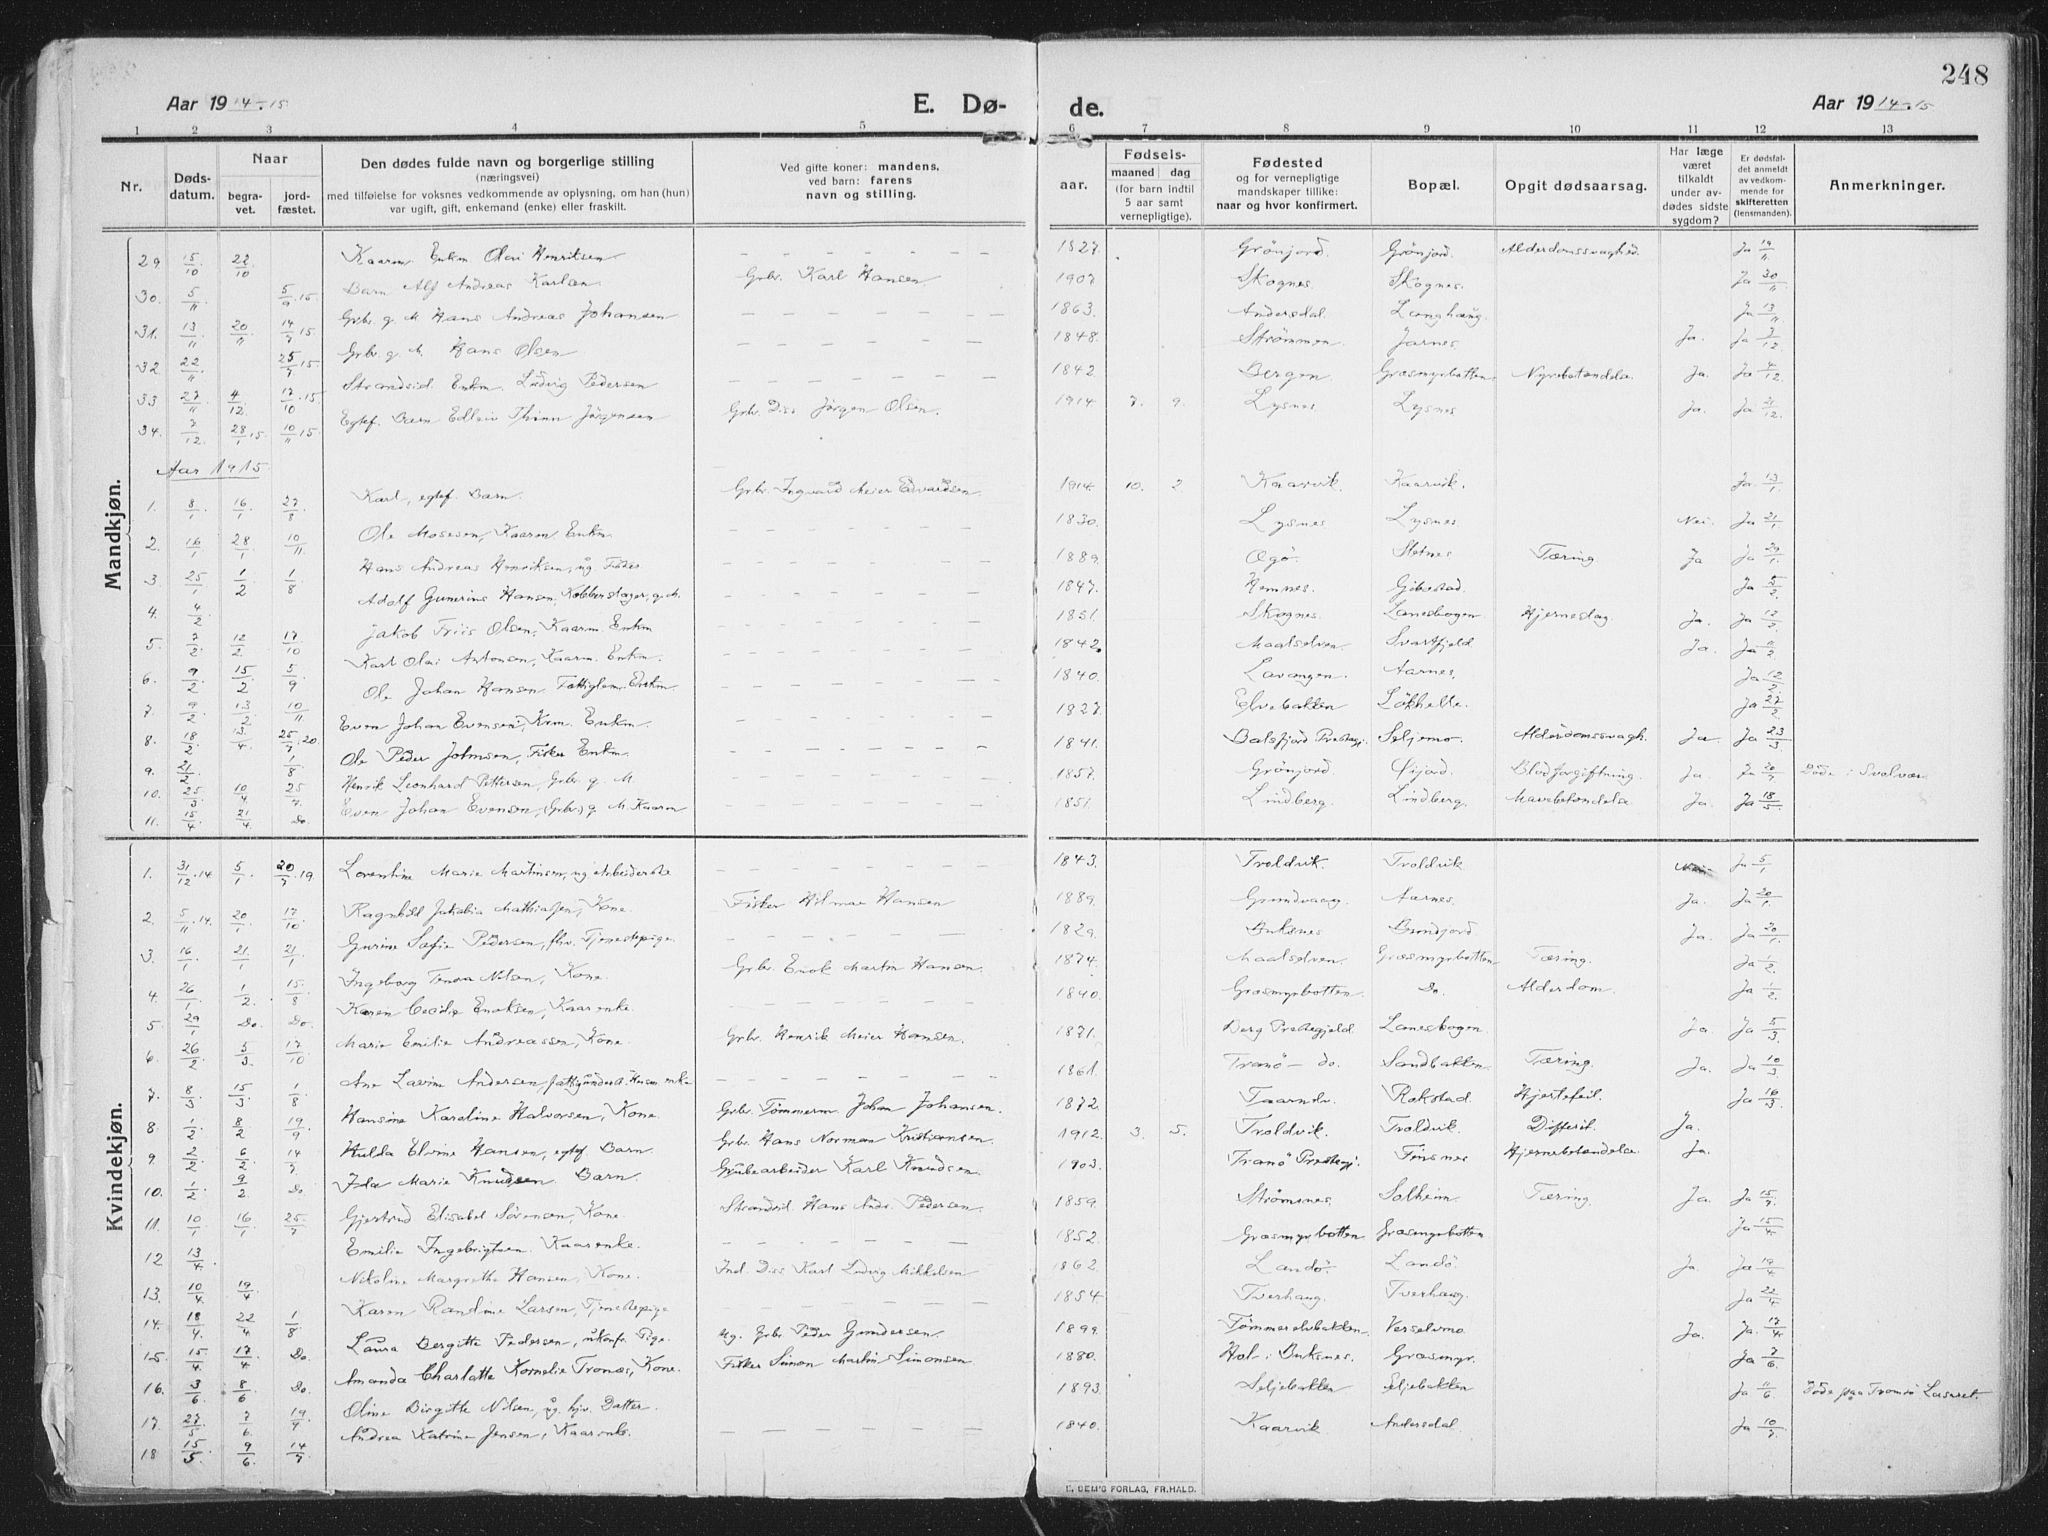 248
Aar 1914-15. E. Dø- de. Aar 1914-15
1 2 3 4 5 6 7 8 9 10 11 12 13
Nr. Dødsdatum. Naar begravet. jordfæstet. Den dødes fulde navn og borgerlige stilling (næringsvei) med tilføielse for voksnes vedkommende av oplysning, om han (hun) var ugift, gift, enkemand (enke) eller fraskilt. Ved gifte koner: mandens, ved barn: farens navn og stilling. Fødsels- aar. maaned dag (for barn indtil 5 aar samt vernepligtige). Fødested og for vernepligtige mandskaper tillike: naar og hvor konfirmert. Bopæl. Opgit dødsaarsag. Har læge været tilkaldt under avdødes sidste sygdom? Er dødsfaldet anmeldt av vedkommende for skifteretten (lensmanden). Anmerkninger.
Mandkjøn.
29. 15/10 22/10 Kaarm. Enkm Olai Henriksen – – – – – – 1827. Grönjord. Grönjord. Alderdomssvaghed. Ja 19/11
30. 5/11 5/9.15. Barn Alf Andreas Karlsen Grbr. Karl Hansen 1907 Skognes. Skognes. Ja 30/11
31. 13/11 20/11 14/7.15. Grbr. g. M Hans Andreas Johansen – – – – – – 1863. Andersdal Langhaug. Ja 13/11
32. 22/11 25/7.15. Grbr. g. M. Hans Olsen – – – – – – 1848. Strömmen Jarnes. Ja. Ja 7/12
33 27/11 4/12. 17/10.15. Strandsid. Enkm. Ludvig Pedersen – – – – – – 1842. Bergen Græsmyrbotten. Nyrebetændelse. Ja. Ja 4/12
34. 7/12. 28/1 15. 10/11 15. Egtef. Barn Edleiv Thinn Jörgensen Grbr. Diss Jörgen Olsen. 1914 7. 9. Lysnes Lysnes Ja. Ja 21/12.
Aar 1915.
1. 8/1 16/1 27/8 Karl, egtef. Barn. Grbr. Ingvard Meier Edvardsen. 1914 10. 2 Kaarvik. Kaarvik. Ja 13/1.
2. 16/1 28/1 10/11 Ole Mosesen, Kaarm. Enkm. – – – – – – 1830. Lysnes Lysnes Nei. Ja 21/1
3. 25/1 1/2 1/8 Hans Andreas Henriksen, ug Fisker – – – – – – 1889. Ogö. Sletnes Tæring Ja Ja 29/1.
4. 4/2 Adolf Gunerius Hansen, Kobbenslager, g. M. – – – – – – 1847. Hemnes. Gibostad. Ja 5/2.
5. 7/2 12/2. 17/10. Jakob Friis Olsen, Kaarm. Enkm – – – – – – 1851. Skognes. Lanesbogen Hjerneslag. Ja. Ja 12/2
6. 9/2 15/2 5/9 Karl Olai Antonsen, Kaarm. Enkm. – – – – – – 1842. Maalselven. Svartfjeld. Ja. Ja 11/2.
7. 9/2 13/2 10/11 Ole Johan Hansen. Fattiglem. Enkm. – – – – – – 1840. Lavangen. Aarnes. Ja 12/2.
8. 18/2. 13/4. 25/7.20. Even Johan Evensen, Krm. Enkm. – – – – – – 1827. Elvebakken Lökhelle. Ja 27/2.
9. 21/2 1/8 Ole Peder Johnsen, Fisker Enkm. – – – – – – 1841. Balsfjord Prestegj. Seljemo. Alderdomssvagh. Ja. Ja 23/3
10. 25/3 10/4. 25/7. Henrik Leonhard Pettersen, Grbr. g. M. – – – – – – 1857. Grönjord. Øijord. Blodforgiftning. Ja. Ja 20/7 Döde i Svolvær
11. 15/4. 21/4 Do. Even Johan Evensen, (Grbr.) g. M. Kaarm – – – – – – 1851. Lindberg. Lindberg. Mavebetændelse Ja. Ja 18/5.
Kvindekjøn.
1. 31/12.14 5/1 20/7.19. Lorentine Marie Martinsen, ug Arbeiderske – – – – – – 1843. Troldvik. Troldvik Nei. Ja 5/1
2. 5/11.14. 20/1. 17/10. Ragnhild Jakobia Mathiassen, Kone. Fisker Hilmar Hansen 1889. Grundvaag. Aarnes. Ja. Ja 20/1.
3. 16/1 21/1. 21/1 Gurine Sofie Pedersen, fhv. Tjenestepige. – – – – – – 1829. Buksnes Bundjord Ja. Ja 20/1.
4. 26/1 1/2. 15/8 Ingeborg Tenora Nilsen, Kone. Grbr. Enok Martin Hansen. 1874. Maalselven. Græsmyrbotten Tæring. Ja 1/2.
5. 29/1 Do. Do. Karen Cecilie Enoksen, Kaarenke. – – – – – – 1840. Græsmyrbotten. Do. Alderdom. Ja 1/2.
6. 26/2. 5/3 17/10 Marie Emilie Andreassen, Kone. Grbr. Henrik Meier Hansen. 1871. Berg Prestegjeld. Lanesbogen. Ja. Ja 5/3.
7. 8/3 15/3. 1/8 Ane Lavine Andersen, fattigunderst. Husm. enke – – – – – – 1861. Tranö – do. Sandbakken. Tæring. Ja. Ja 10/3
8 1/2 8/2 19/9 Hansine Karoline Halvorsen, Kone. Grbr. Tömmerm. Johan Johansen. 1872. Taarndv. Rokstad. Hjertefeil. Ja 16/3
9. 2/2. 6/2. 14/7. Hulda Elvine Hansen, egtef Barn Grbr. Hans Norman Kristiansen. 1912. 3. 5. Troldvik. Troldvik. Difterit. Ja.
10. 1/2 9/2. Do. Ida Marie Knudsen Barn. Grubearbeider Karl Knudsen. 1903. Tranö Prestegj. Finsnes Hjernebetændelse Ja.
11. 10/1 16/1 25/7 Gjertrud Elisabet Sörensen, Kone. Strandsid. Hans Andr. Pedersen. 1859. Strömsnes. Solheim. Tæring. Ja. Ja 15/7.
12 13/4 Emilie Ingebrigtsen. Kaarenke. – – – – – – 1852. Græsmyrbotten Græsmyrbotten Ja 15/4.
13. 10/4. 19/4 Nikoline Margrethe Hansen, Kone. Ind. Diss Karl Ludvig Mikkelsen 1862. Landö. Landö. Ja. Ja 19/4
14. 18/4. 22/4 1/8 Karen Randine Larsen, Tjenestepige – – – – – – 1854. Tverhaug. Tverhaug. Ja 22/4
15. 15/4. 17/4 Do. Laura Bergitte Pedersen, ukonfr. Pige. ug. Grbr Peder Gundersen 1899. Tömmerelvbakken. Vesselvmo. Ja. Ja. 17/4.
16. 3/6 8/6 Do. Amanda Charlotte Kornelie Tronås, Kone. Fisker Simon Martin Simonsen 1880. Hol i Buksnes. Græsmyr. Ja 7/6.
17. 27/5 7/6. 19/7. Oline Birgitte Nilsen, ug. hjv. Datter. – – – – – – 1893. Seljebakken Seljebakken Ja 11/6. Döde paa Tromsö Lasaret.
18 15/5. 9/6. 14/7 Andrea Katrine Jensen, Kaarenke. – – – – – – 1840. Kaarvik Andersdal. Ja 10/7.
E. SEM'S FORLAG, FR.HALD.